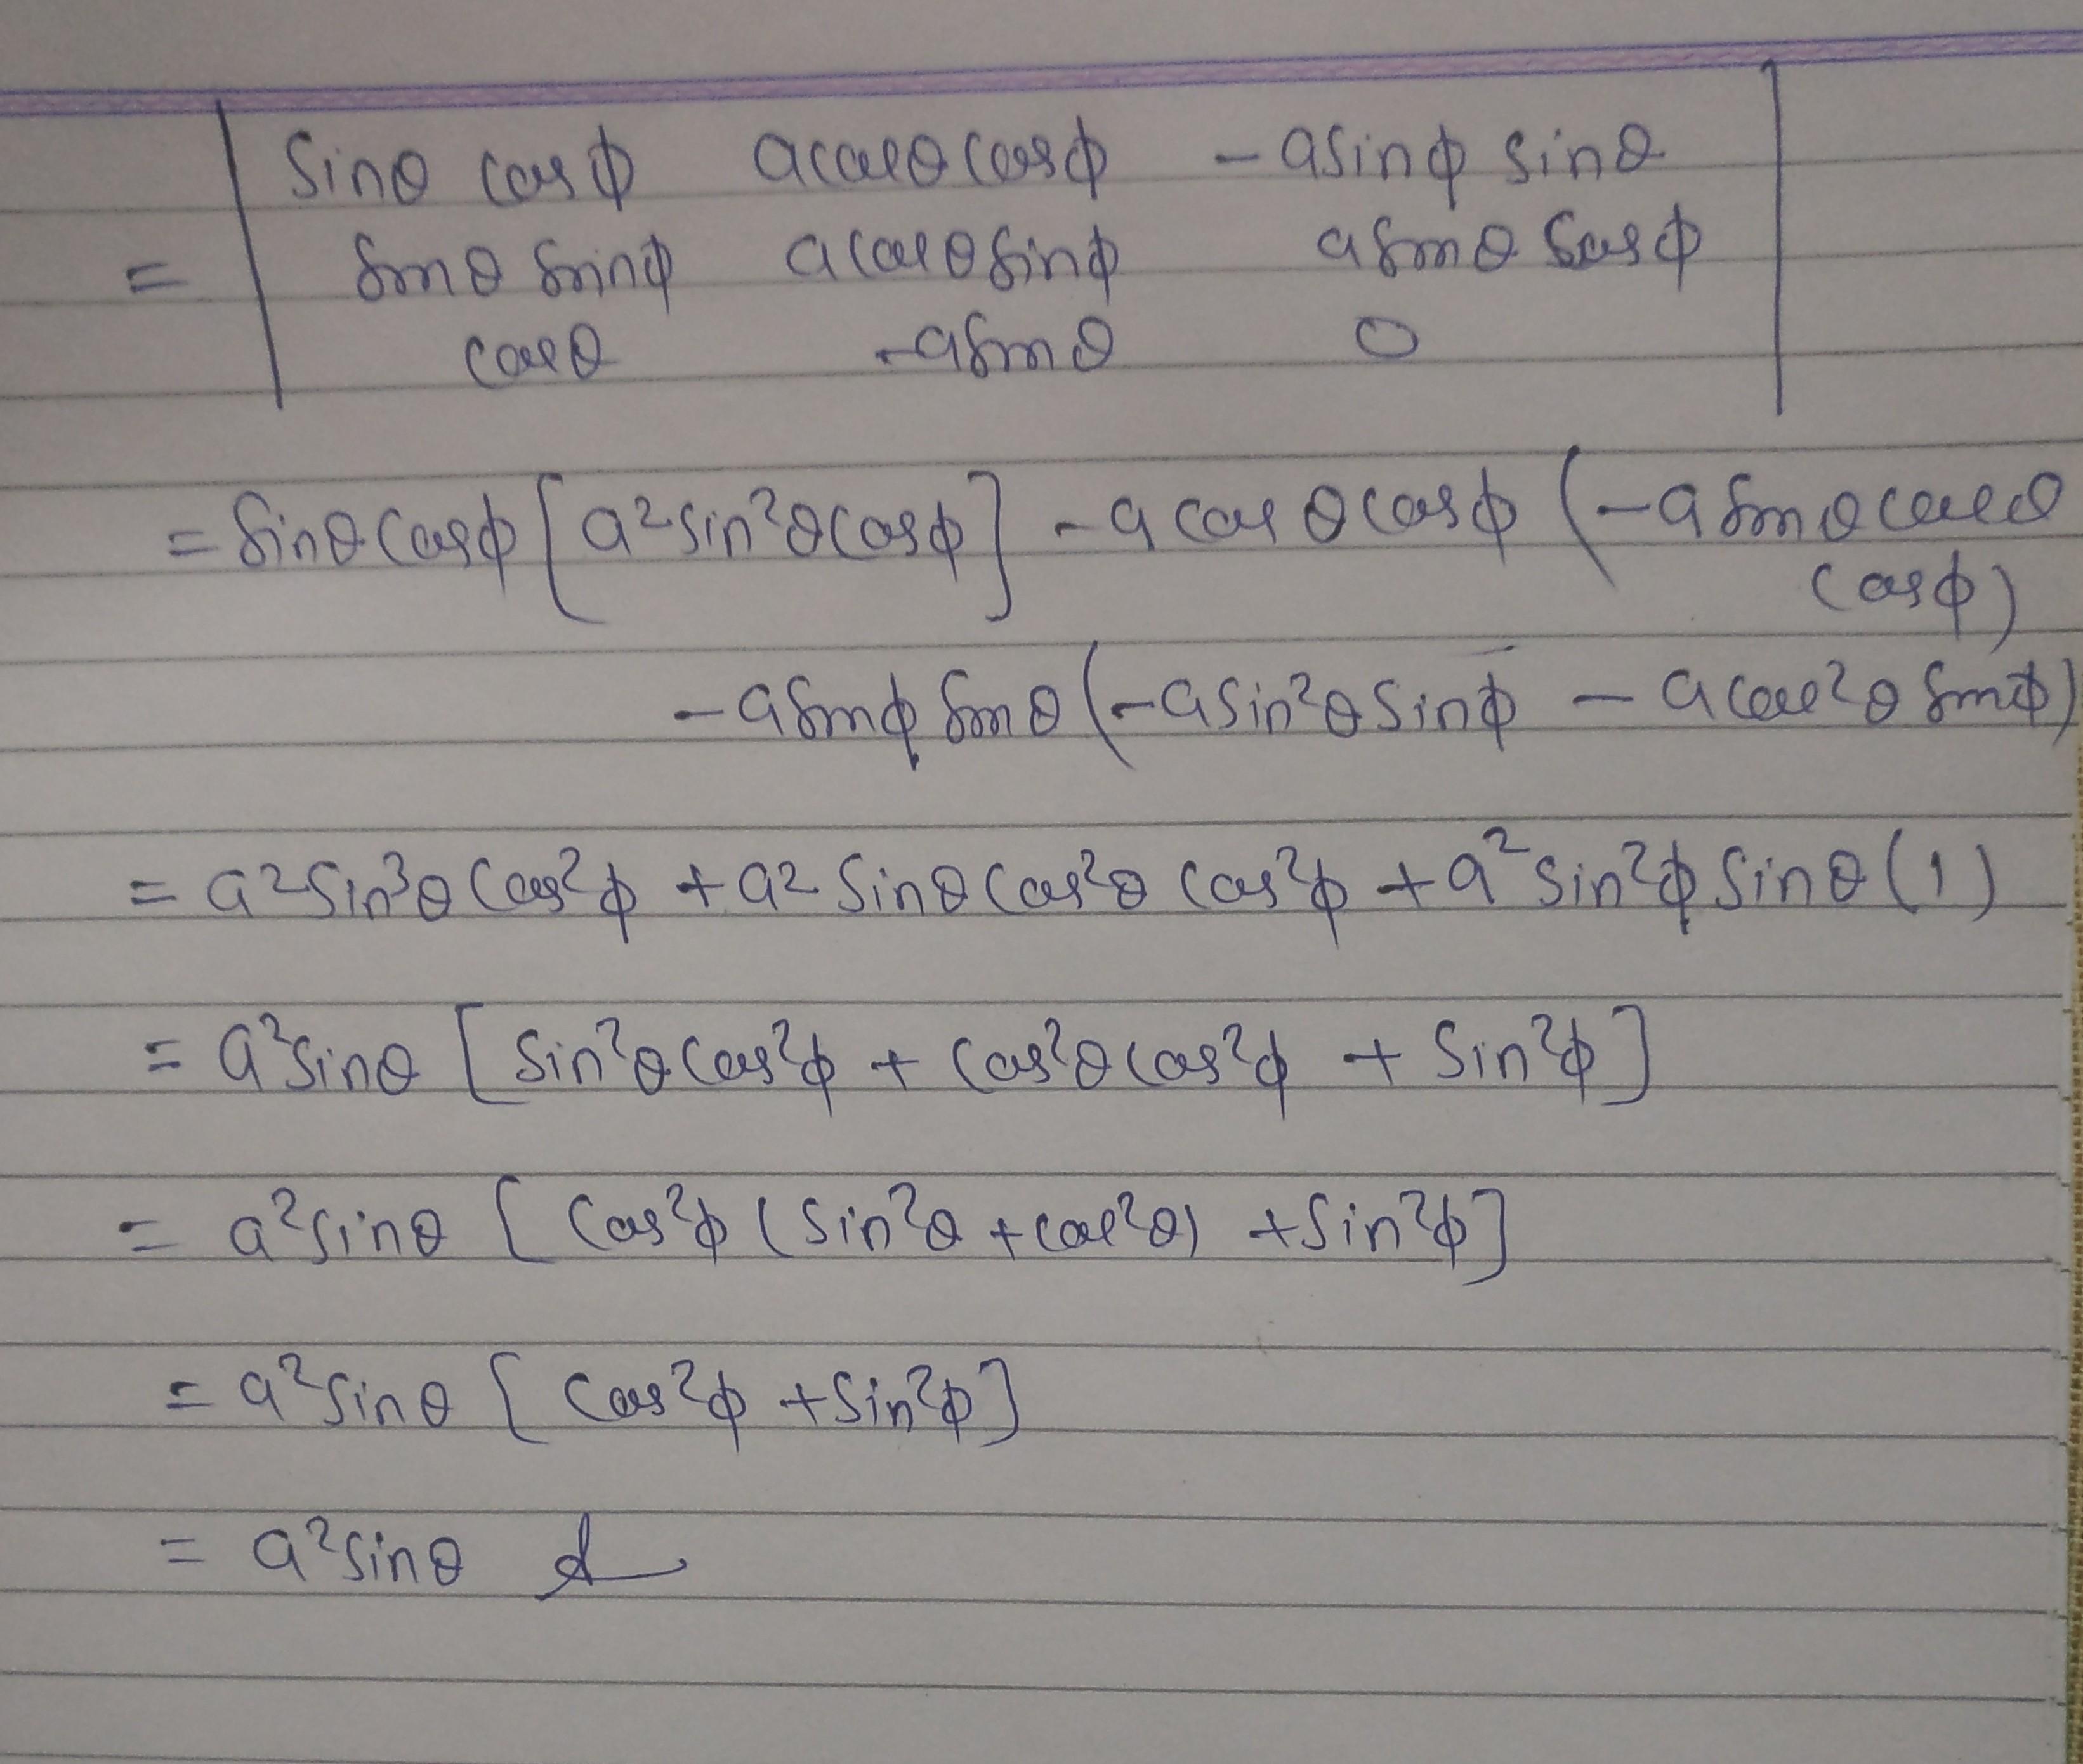 | sinθ cosϕ   acosθ cosϕ   - asinϕ sinθ |
= | sinθ sinϕ   acosθ sinϕ   asinθ cosϕ |
| cosθ   -asinθ   0 |
= sinθ cosϕ [a²sin²θ cosϕ] - a cosθ cosϕ (-a sinθ cosθ
cosϕ)
- asinϕ sinθ (-asin²θ sinϕ - acos²θ sinϕ)
= a²sin³θ cos²ϕ + a² sinθ cos²θ cos²ϕ + a² sin²ϕ sinθ (1)
= a²sinθ [sin²θ cos²ϕ + cos²θ cos²ϕ + sin²ϕ]
= a²sinθ [cos²ϕ (sin²θ + cos²θ) + sin²ϕ]
= a²sinθ [cos²ϕ + sin²ϕ]
= a²sinθ